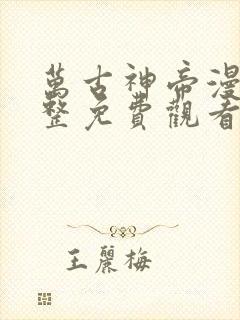 萬古神帝漫
整免費觀看
王麗梅